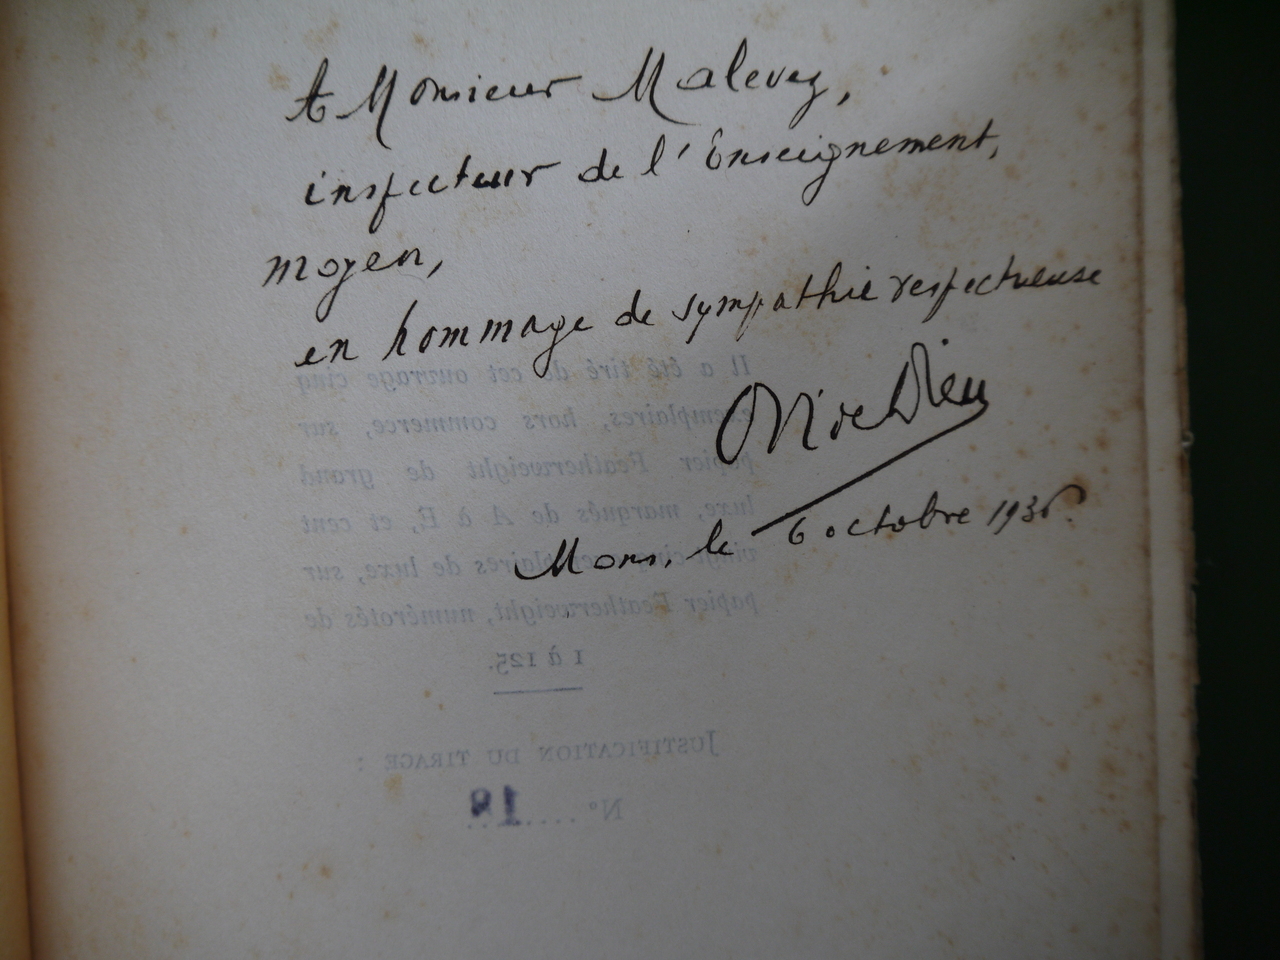 A Monsieur Malevez,
inspecteur de l'Enseignement,
moyen,
en hommage de sympathie respectueuse
Mons, le 6 octobre 1936.
Il a été tiré de cet ouvrage cinq
exemplaires, hors commerce, sur
papier Featherweight de grand
luxe, marqués de A à E, et cent
vingt-cinq exemplaires de luxe, sur
papier Featherweight, numérotés de
1 à 125.
JUSTIFICATION DU TIRAGE :
N° ........ 18